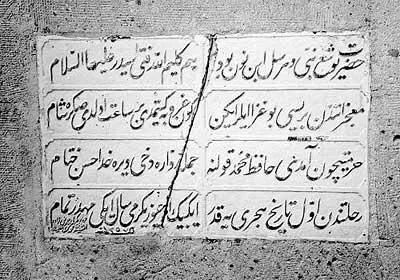 حضرت یوشع نبی و مرسل ابن نون بودر هم کلیم الله فتاسیدر علیهما السلام
معجزاتندن بریسی بو غزا ایلر ایکن کون غروب ایتمدی بر ساعت اولدی صکره شام
حرمتیچون آمدنی حافظ محمد قولنه جمله یارانه دخی ویره خدا حسن ختام
رحلتندن اول تاریخ هجری یه قدر ایکیبیک اوچیوز یکرمی سال ایکی مهدر تمام